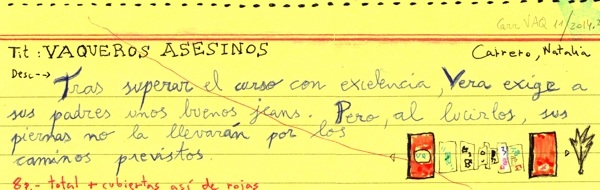 Carr VAQ 11/2014
Tít: VAQUEROS ASESINOS
Carrero, Natalia
Desc-->
Tras superar el curso con excelencia, Vera exige a
sus padres unos buenos jeans. Pero, al lucirlos, sus
piernas no la llevarán por los
caminos previstos.
- total + cubiertas así de rojas